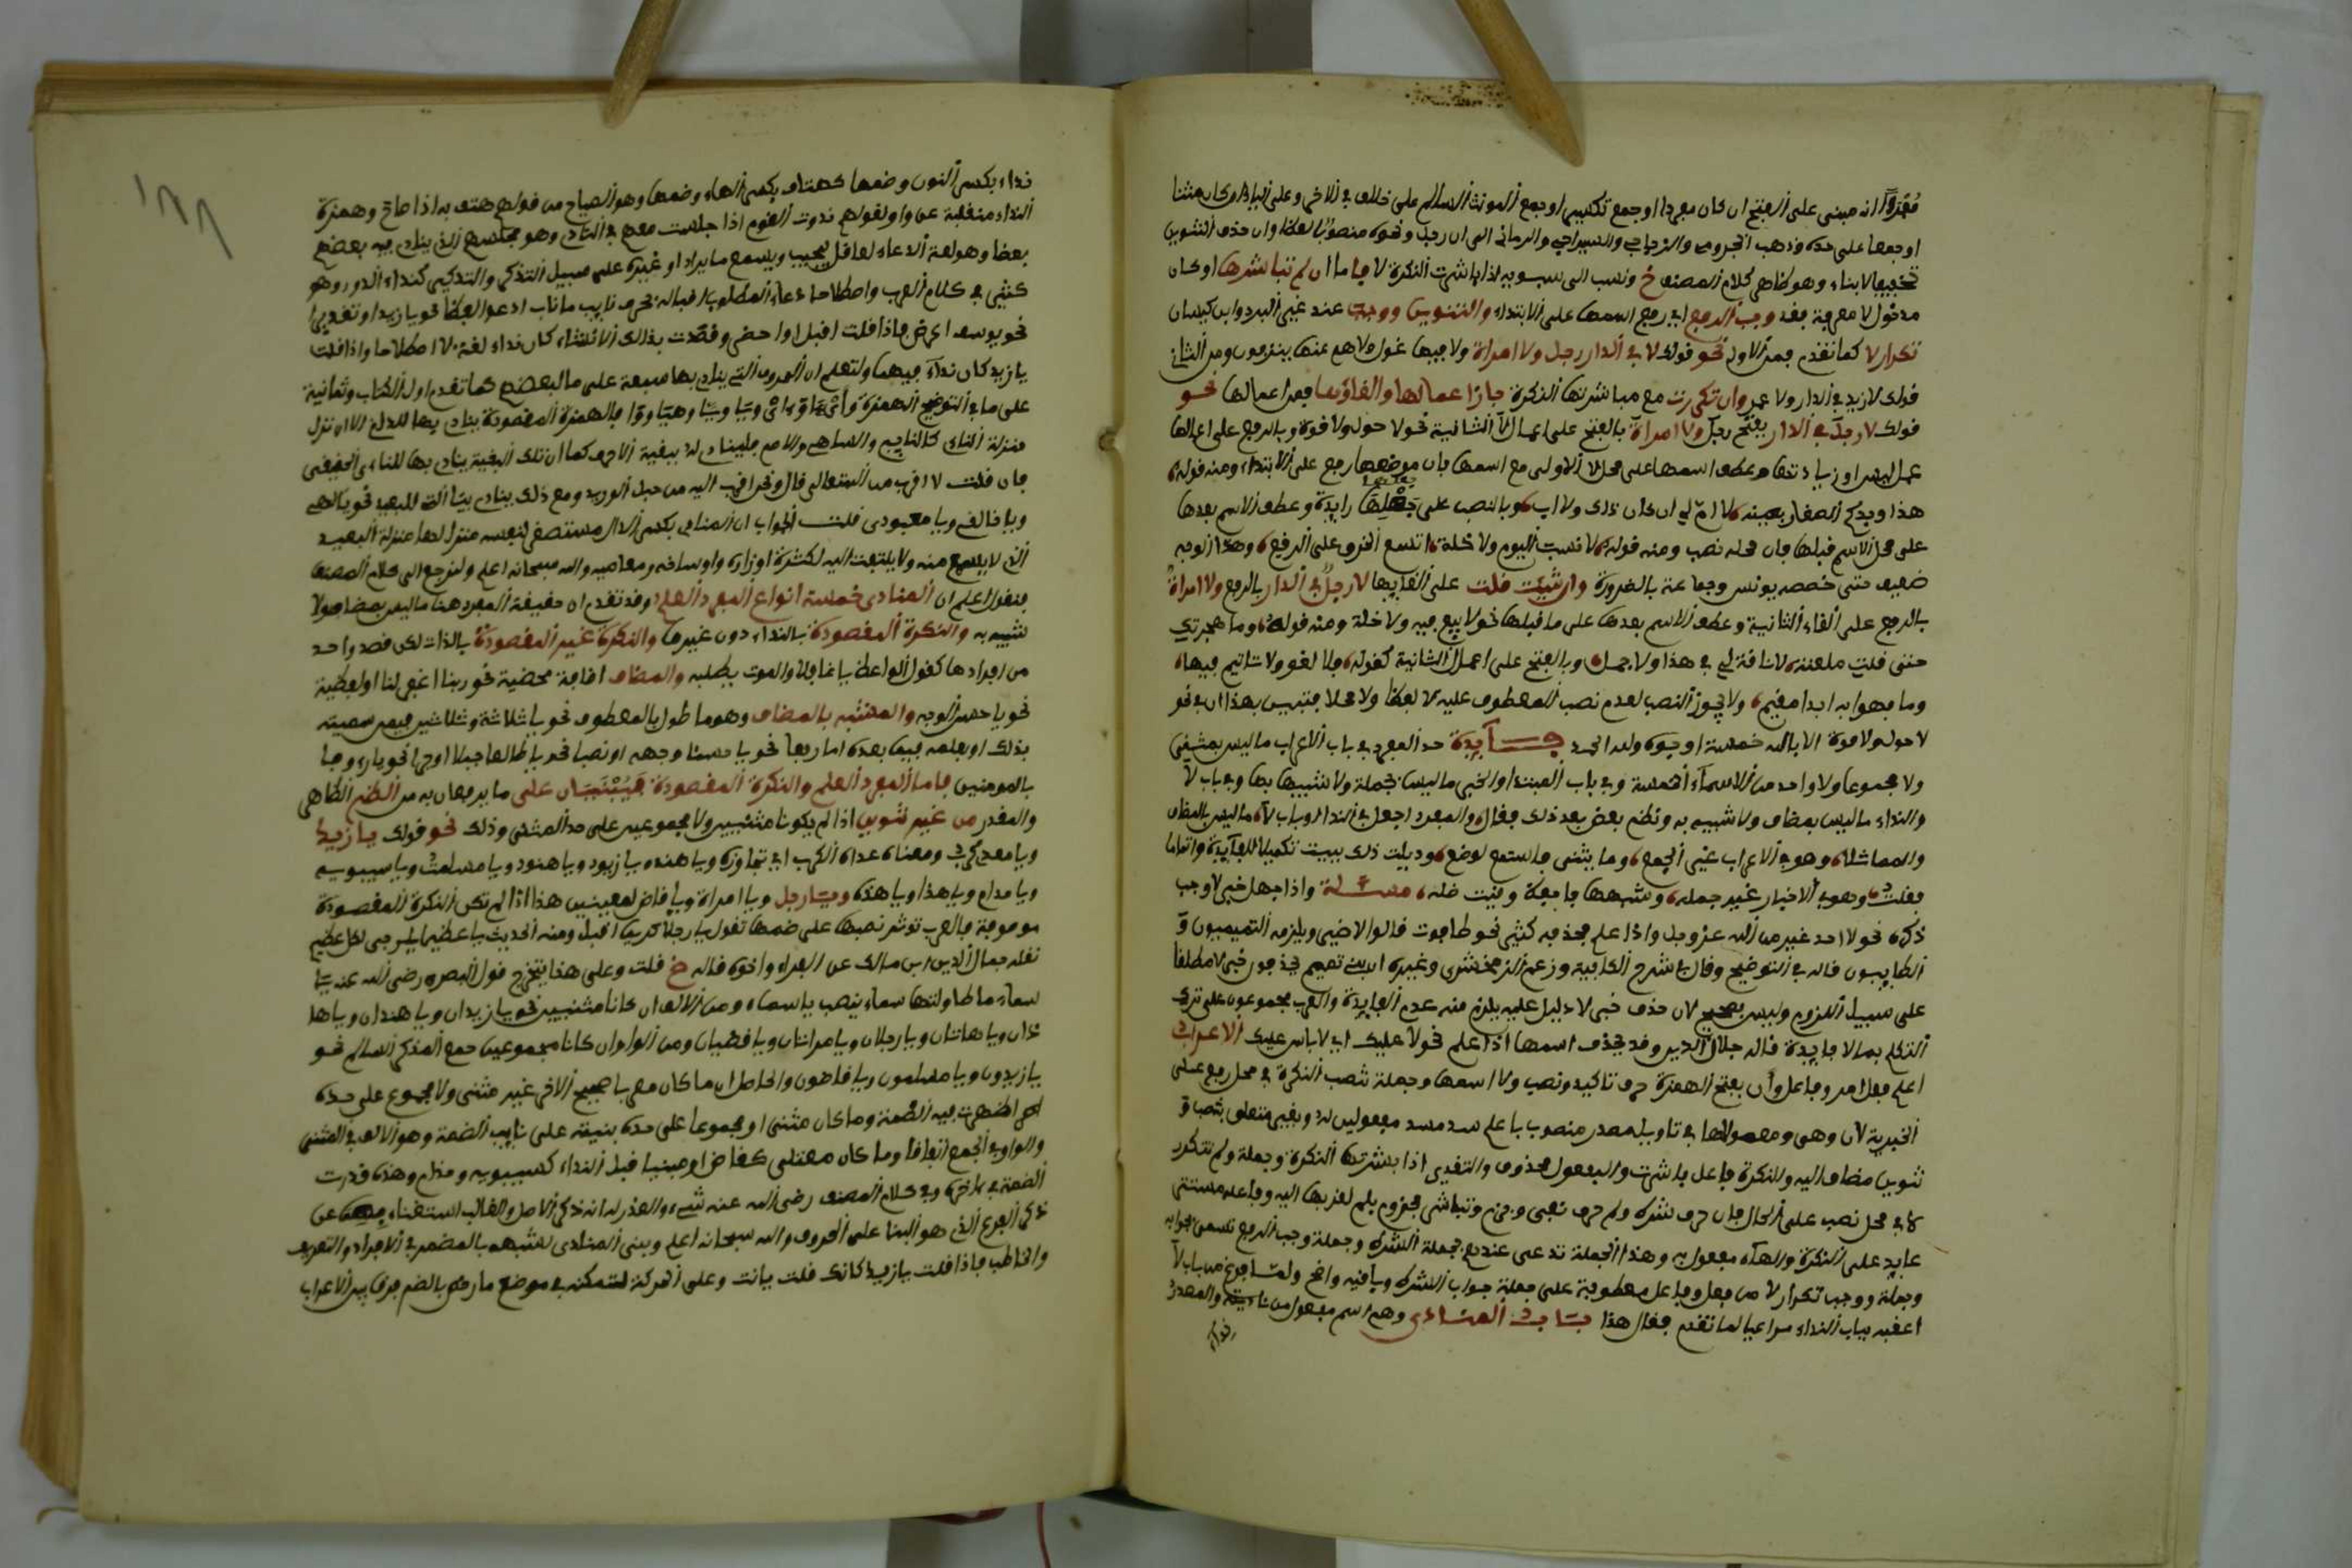 مُقدرًا انه مبني على الفتح ان كان مفردا او جمع تكسير او جمع المونث السالم على خلاف في الاخير وعلى الياء اذا كان مثنا
او جمعا على حده وذهب الجرمي والزجاج والسيرافي والرماني الى ان رجل ونحوه منصوب لفظا وان حذف التنوين
تخفيفا لا بناء وهو ظاهر كلام المصنف خ ونسب الى سيبويه اذا باشرت النكرة لا فاما ان لم تباشرها او كان
مدخول لا معرفة فقد وجب الرفع اي رفع اسمها على الابتداء والتنوين ووجب عند غير المبرد وابن كيسان
تكرار لا كما تقدم فمن الاول نحو قولك لا في الدار رجل ولا امراة ولا فيها غول ولا هم عنها ينزفون ومن الثاني
قولك لا زيد في الدار ولا عمرو وان تكررت مع مباشرتها النكرة جاز اعمالها والغاؤها فمن اعمالها نحو
قولك لا رجل في الدار بفتح رجل ولا امراة بالفتح على اعمال لا الثانية نحو لا حول ولا قوة وبالرفع على اعمالها
عمل ليس او زيادتها وعطف اسمها على محل لا الاولى مع اسمها فان موضعها رفع على الابتداء ومنه قوله
هذا وجدكم الصغار بعينه لا ام لي ان كان ذاك ولا اب وبالنصب على جعلها زايدة وعطف الاسم بعدها
على محل الاسم قبلها فان محله نصب ومنه قوله لا نسب اليوم ولا خلة اتسع الخرق على الرقع وهذا الوجه
ضعيف حتى خصصه يونس وجماعة بالضرورة وان شيت قلت على الغايها لا رجلٌ في الدار بالرفع ولا امراةٌ
بالرفع على الغاء الثانية وعطف الاسم بعدها على ما قبلها نحو لا بيع فيه ولا خلة ومنه قوله وما هجرتك
حتى قلت معلنة لا ناقة لي في هذا ولا جمل وبالفتح على اعمال الثانية كقوله فلا لغو ولا تاثيم فيها
وما فاهوا به ابدا مقيم ولا يجوز النصب لعدم نصب المعطوف عليه لا لفظا ولا محلا فتبين بهذا ان في نحو
لا حول ولا قوة الا بالله خمسة اوجه ولله الحمد فايدة حد المفرد في باب الاعراب ما ليس بمثنى
ولا مجموعا ولا واحد من الاسماء الخمسة وفي باب المبتدا والخبر ما ليس بجملة ولا شبيها بها وفي باب لا
والنداء ما ليس بمضاف ولا شبيه به ونظم بعض بعد ذلك فقال والمفرد اجعل في النداء وباب لا ما ليس بالمضاف
والمماثلا وهو في الاعراب غير الجمع وما يثنى فاستمع لوضع وذيلت ذلك ببيت تكميلا للفايدة واتماما
فقلت وهو في الاخبار غير جملة وشبهها فاجعله وقيت ضله مسئلة واذا جهل خبر لا وجب
ذكره نحو لا احد غير من الله عز وجل واذا علم فحذفه كثير نحو فلا فوت قالوا لا ضير ويلزمه التميميون و
الطاييون قاله في التوضيح وقال في شرح الكافية وزعم الزمخشري وغيره ان بني تميم يحذفون خبر لا مطلقا
على سبيل اللزوم وليس بصحيح لان حذف خبر لا دليل عليه يلزم منه عدم الفايدة والعرب مجموعون على ترك
التكلم بما لا فايدة قاله جلال الدين وقد يحذف اسمها اذا علم نحو لا عليك اي لا باس عليك الاعراب
اعلم فعل امر وفاعل وأن بفتح الهمزة حرف تاكيد ونصب ولا اسمها وجملة تنصب النكرة في محل رفع على
الخبرية لان وهي ومعمولاها في تاويل مصدر منصوب باعلم سد مسد مفعولين له وبغير متعلق بتنصب و
تنوين مضاف اليه والنكرة فاعل باشرت والمفعول محذوف والتقدير اذا باشرتها النكرة وجملة ولم تتكرر
لا في محل نصب على الحال فان حرف شرط ولم حرف نفي وجزم وتباشر مجزوم بلم لقربها اليه وفاعله مستتر
عايد على النكرة والهاء مفعول به وهذا الجملة تدعى عندهم بجملة الشرط وجملة وجب الرفع تسمى جوابه
وجملة ووجب تكرار لا من فعل وفاعل معطوفة على جملة جواب الشرط وباقيه واضح ولما فرغ من باب لا
اعقبه بباب النداء مراعيا لما تقدم فقال هذا باب المنادى وهو اسم مفعول من ناديته والمصدر
نداء
١٨٨
نداء بكسر النون وضمها كهتاف بكسر الهاء وضمها وهو الصياح من قولهم هتف به اذا صاح وهمزة
النداء منقلبة عن واو لقولهم ندوت القوم اذا جلست معهم في النادي وهو مجلسهم الذي ينادي فيه بعضهم
بعضا وهو لغة الدعاء لعاقل يجيب ويسمع ما يراد او غيره على سبيل التذكر والتذكير كنداء الدور وهو
كثير في كلام العرب واصطلاحا دعاء المطلوب اقباله بحرف نايب مناب ادعو لفظا نحو يا زيد او تقديرا
نحو يوسف اعرض فاذا قلت اقبل او احضر وقصدت بذلك الانشاء كان نداء لغة لا اصطلاحا واذا قلت
يا زيد كان نداء فيهما ولتعلم ان الحروف التي ينادى بها سبعة على ما لبعضهم كما تقدم اول الكتاب وثمانية
على ما في التوضيح الهمزة وأي وآ وآي ويا وأيا وهيا ووا فالهمزة المقصودة ينادى بها للداني الا ان نزل
منزلة الناي كالنايم والساهي والاصم فلينادى له ببقية الاحرف كما ان تلك البقية ينادى بها للناي الحقيقي
فان قلت لا اقرب من الله تعالى قال ونحن اقرب اليه من حبل الوريد ومع ذلك ينادى بيا التي للبعيد نحو يا الهي
ويا خالقي ويا معبودي قلت الجواب ان المنادي بكسر الدال مستصغر لنفسه منزل لها منزلة البعيد
الذي لا يسمع منه ولا يلتفت اليه لكثرة اوزاره واوساخه ومعاصيه والله سبحانه اعلم ولنرجع الى كلام المصنف
فنقول اعلم ان المنادى خمسة انواع المفرد العلم وقد تقدم ان حقيقة المفرد هنا ما ليس بمضاف ولا
شبيه به والنكرة المقصودة بالنداء دون غيرها والنكرة غير المقصودة بالذات لكن قصد واحد
من افرادها كقول الواعظ يا غافلا والموت يطلبه والمضاف اضافة محضية نحو ربنا اغفر لنا او لفظية
نحو يا حسن الوجه والمشبه بالمضاف وهو ما طول بالمعطوف نحو يا ثلاثة وثلاثين فيمن سميته
بذلك او بعلمه فيما بعده اما رفعا نحو يا حسنا وجهه او نصبا نحو يا طالعا جبلا او جرا نحو يا رءوفا
بالمومنين فاما المفرد العلم والنكرة المقصودة فَيُبْنَيَان على ما يرفعان به من الضم الظاهر
والمقدر من غير تنوين اذا لم يكونا مثنيين ولا مجموعين على حد المثنى وذلك نحو قولك يا زيد
ويا معدي كرب ومعناه عداه الكرب اي تجاوزه ويا هند ويا زيود ويا هنود ويا مسلمات ويا سيبويه
ويا حذام ويا هذا ويا هذه ويا رجل ويا امراة ويا قاض لمعينين هذا اذا لم تكن النكرة المقصودة
موصوفة فالعرب توثر نصبها على ضمها تقول يا رجلا كريما اقبل ومنه الحديث يا عظيما يرجى لكل عظيم
نقله جمال الدين ابن مالك عن الفراء واخوه قاله خ قلت وعلى هذا يتخرج قول البصري رضي الله عنه يا
سماء ما طاولتها سماء بنصب يا سماء ومن الالف ان كانا مثنيين نحو يا زيدان ويا هندان ويا ها
ذان ويا هاتان ويا رجلان ويا مراتان ويا قاضيان ومن الواو ان كانا مجموعين جمع المذكر السالم نحو
يا زيدون ويا مسلمون ويا قاضون والحاصل ان ما كان معربا صحيح الاخر غير مثنى ولا مجموع على حده
اظهرت فيه الضمة وما كان مثنى او مجموعا على حده بنيته على نايب الضمة وهو الالف في المثنى
والواو في الجمع اتفاقا وما كان معتلا كقاض او مبنيا قبل النداء كسيبويه وحذام وهذه قدرت
الضمة في اخره وفي كلام المصنف رضي الله عنه شيء والعذر له انه ذكر الاصل والغالب استغناء عن
ذكر الفرع الذي هو البنا على الحروف والله سبحانه اعلم وبني المنادى لشبهه بالمضمر في الافراد والتعريف
والخطاب فاذا قلت يا زيد كانك قلت يا انت وعلى الحركة لتمكنه في موضع ما وخص بالضم فرقا بين الاعراب